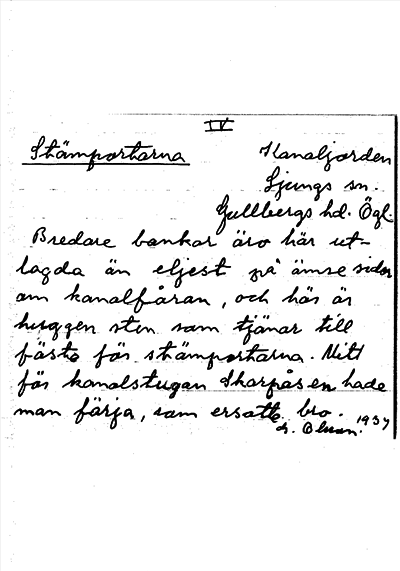 IV
Stämportarna
Kanaljorden
Ljungs sn.
Gullbergs hd. Ögl.
Bredare bankar äro här ut-
lagda än eljest på ömse sidor
om kanalfåran, och här är
huggen sten som tjänar till
fäste för stämportarna. Mitt
för kanalstugan Skarpåsen hade
man färja, som ersatte bro.
1937